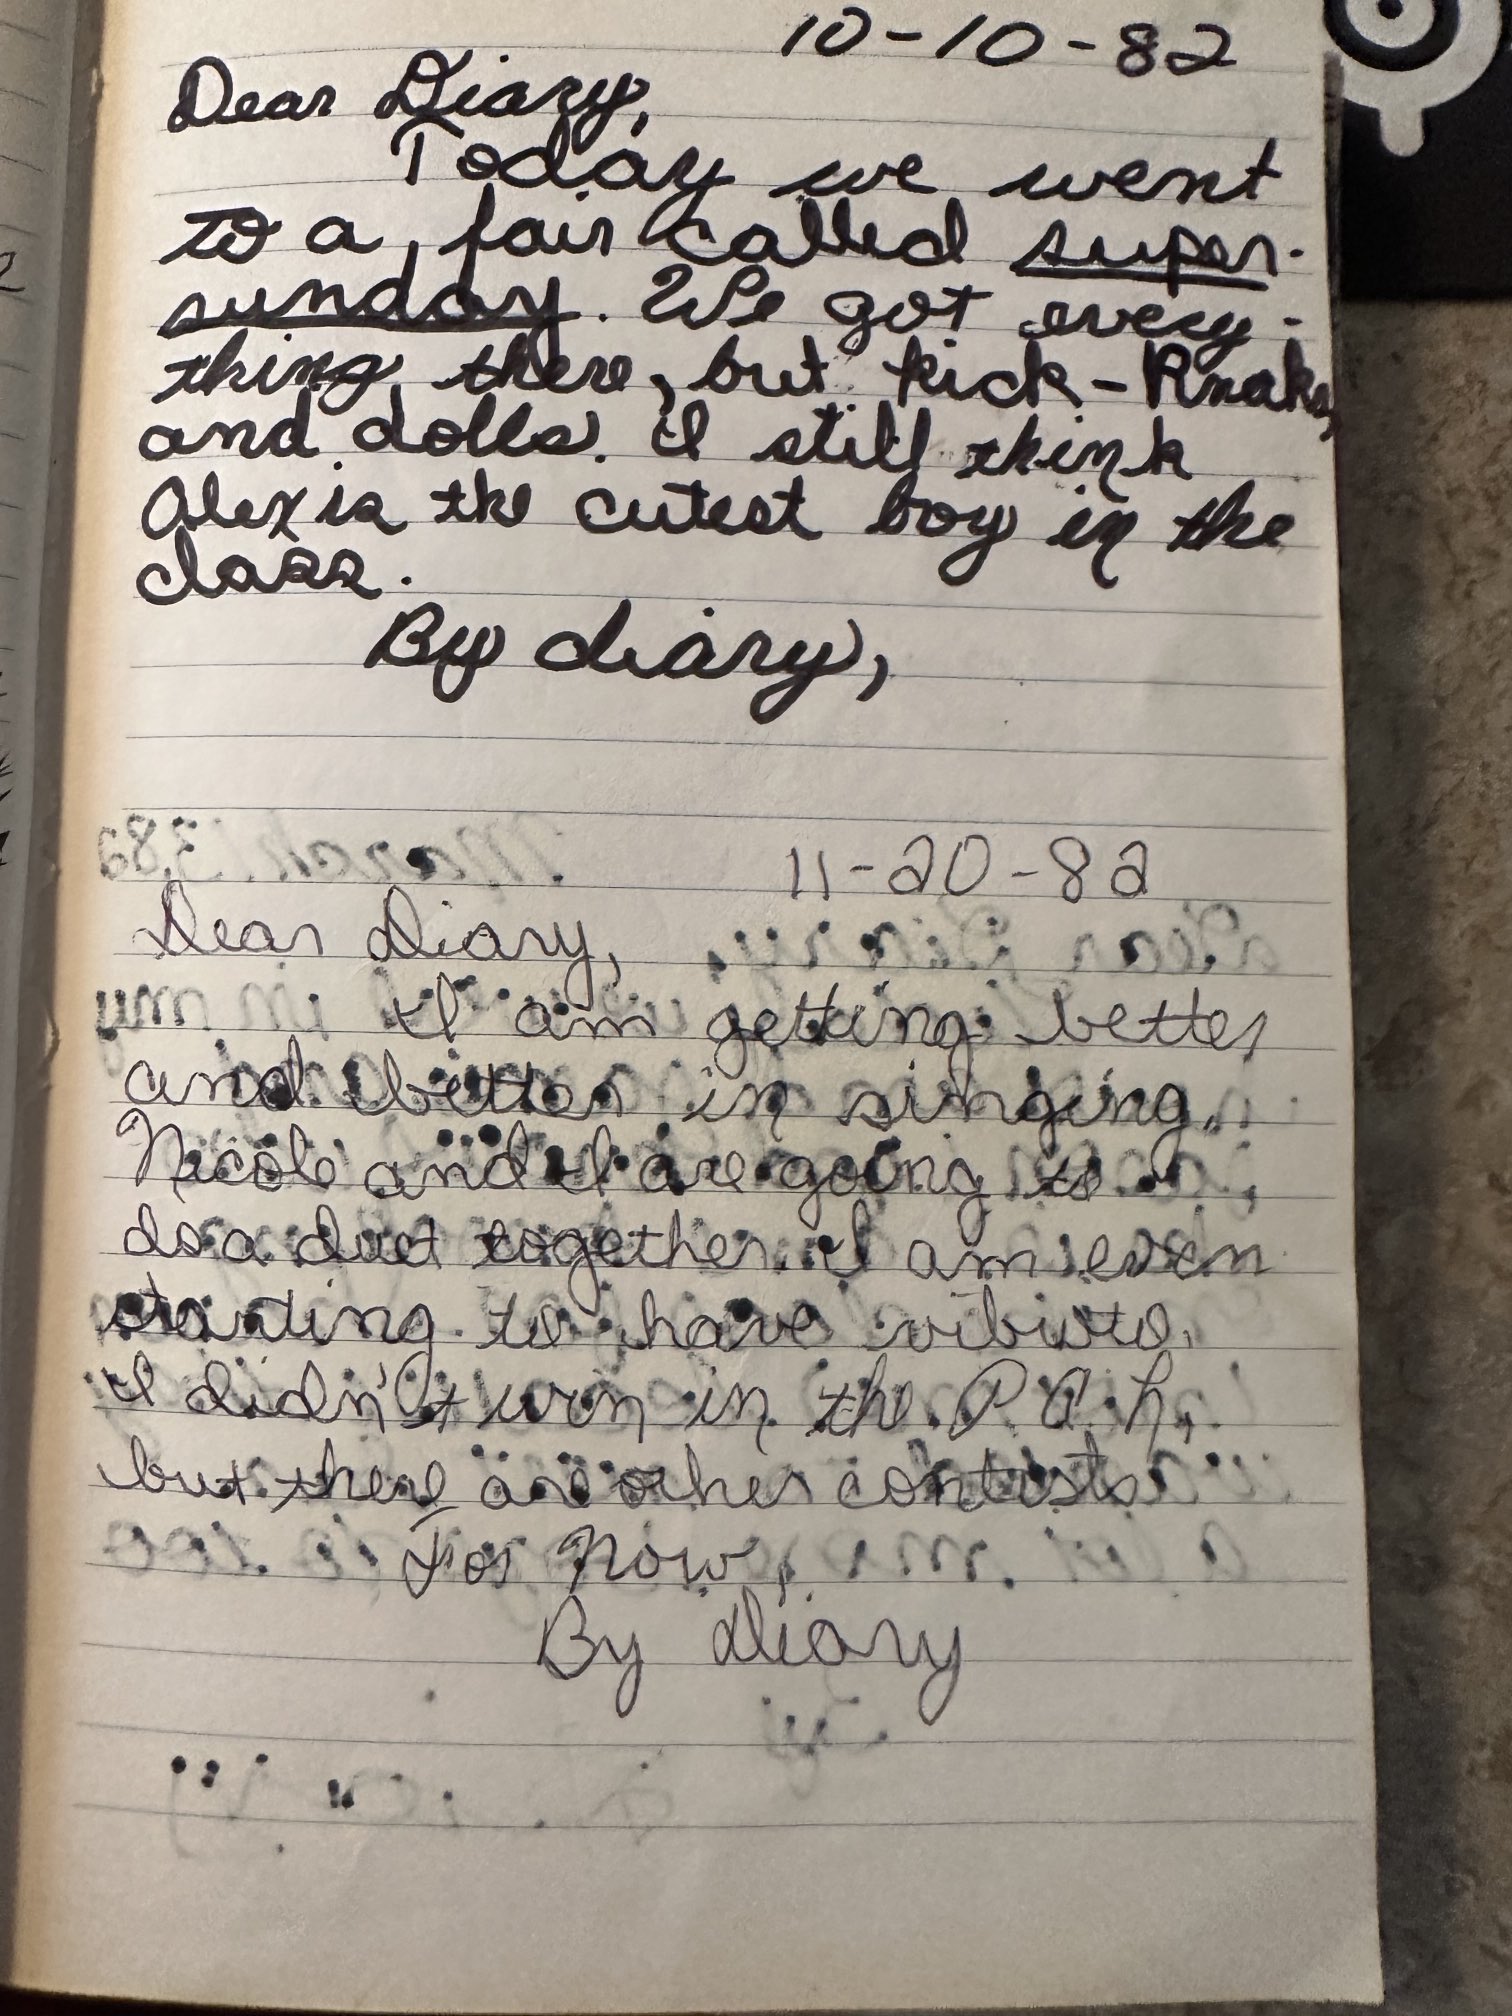 10-10-82
Dear Diary,
Today we went
to a fair called super-
sunday. We got every-
thing there, but kick-Knaks,
and dolls. I still think
Alex is the cutest boy in the
class.
By diary,
March 3, 82
11-20-82
Dear Diary,
I am getting better
and better in singing.
Nicole and I are going to
do a duet together. I am even
starting to have vibirto.
I didn't turn in the P.C.h,
but there are other contists
For Now,
By diary